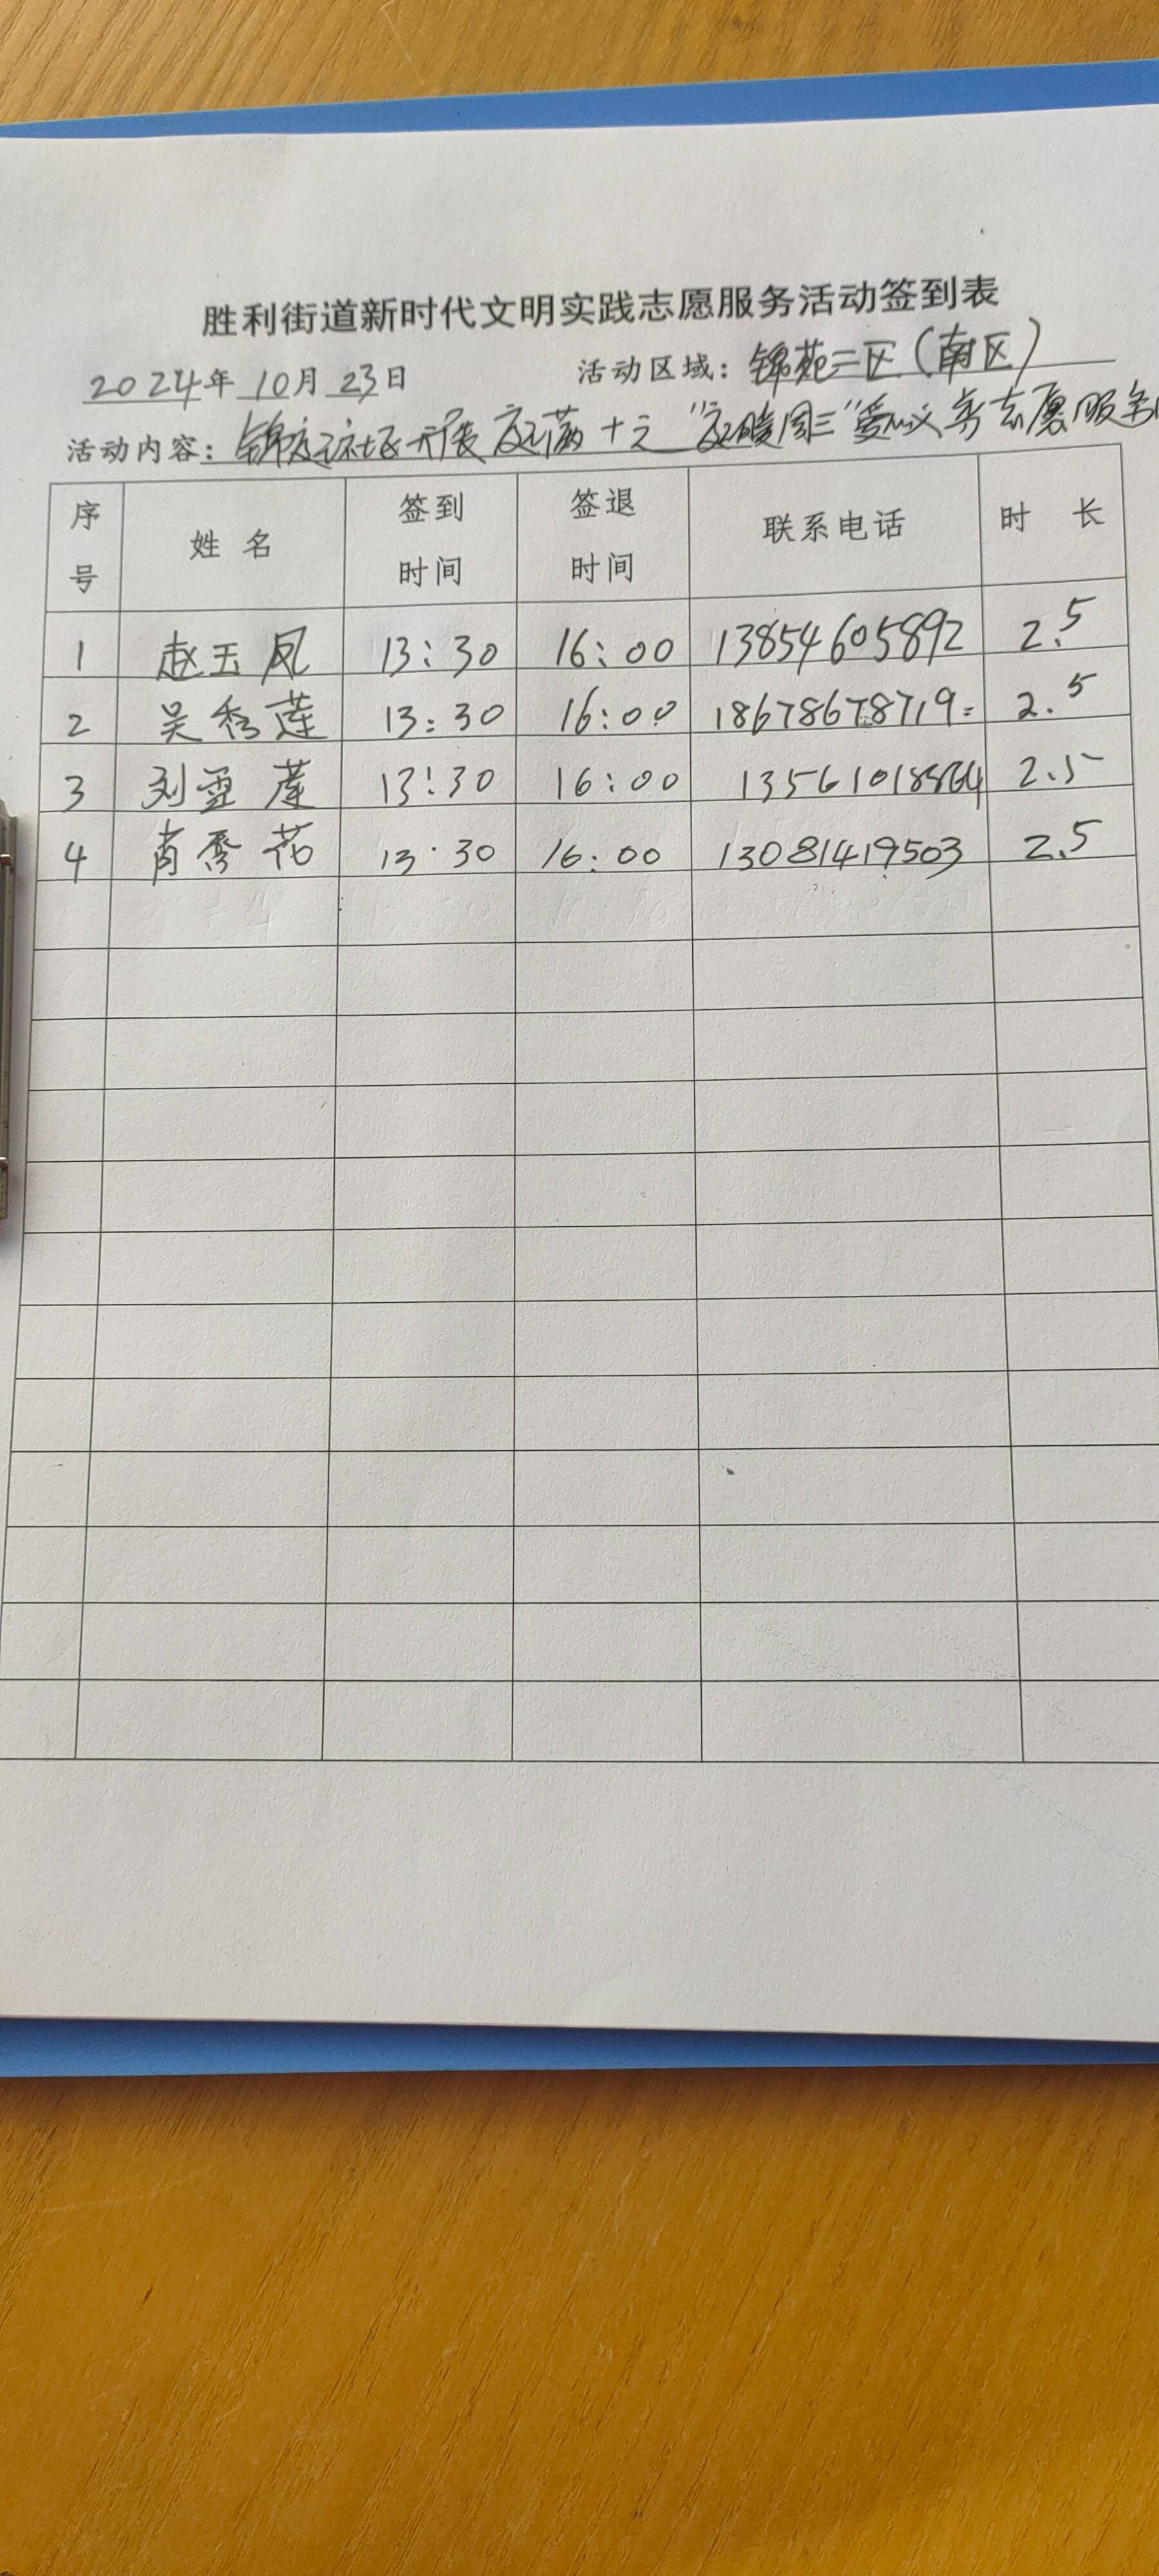 胜利街道新时代文明实践志愿服务活动签到表
2024年 10月 23日 活动区域：锦苑二区（南区）
活动内容：锦 社区开展 满十 "暖周三"爱心义剪志愿服务
序号 姓名 签到时间 签退时间 联系电话 时长
1 赵玉凤 13:30 16:00 13854605892 2.5
2 吴秀莲 13:30 16:00 18678678719 2.5
3 刘 莲 13:30 16:00 2.5
4 肖秀花 13:30 16:00 13081419503 2.5